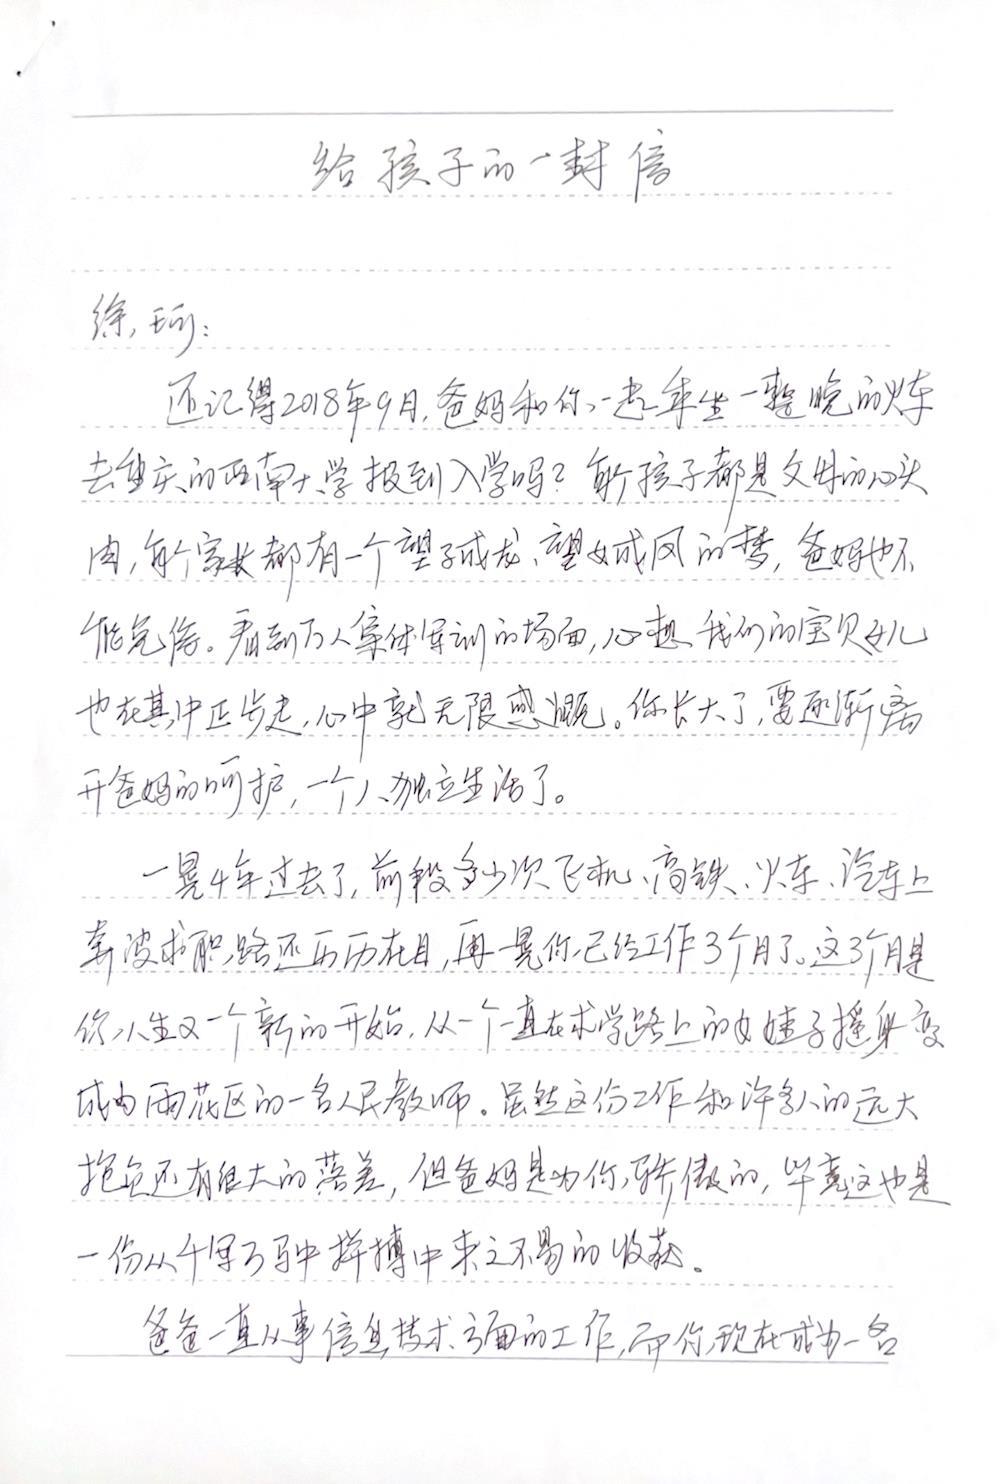 给孩子的一封信
徐珂:
还记得2018年9月,爸妈和你一起乘坐一整晚的火车
去重庆的西南大学报到入学吗?每个孩子都是父母的心头
肉,每个家长都有一个望子成龙、望女成凤的梦,爸妈也不
能免俗。看到万人集体军训的场面,心想我们的宝贝女儿
也在其中正步走,心中就无限感慨。你长大了,要逐渐离
开爸妈的呵护,一个人独立生活了。
一晃4年过去了,前段多少次飞机、高铁、火车、汽车上
奔波求职路还历历在目,再一晃你已经工作3个月了。这3个月是
你人生又一个新的开始,从一个一直在求学路上的女娃子摇身变
成为雨花区的一名人民教师。虽然这份工作和许多人的远大
抱负还有很大的落差,但爸妈是为你骄傲的,毕竟这也是
一份从千军万马中拼搏中来之不易的收获。
爸爸一直从事信息技术方面的工作,而你现在成为一名